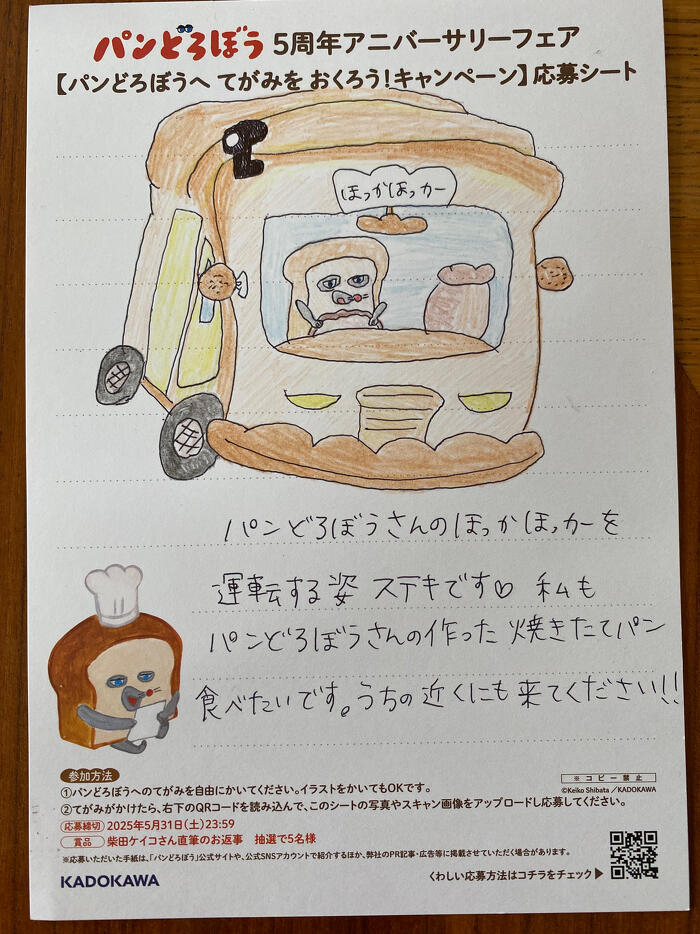 パンどろぼう 5周年アニバーサリーフェア
【パンどろぼうへ てがみを おくろう!キャンペーン】応募シート
ほっかほっカー
パンどろぼうさんのほっかほっカーを
運転する姿 ステキです♡ 私も
パンどろぼうさんの作った 焼きたてパン
食べたいです。うちの近くにも 来てください!!
参加方法
※コピー禁止
①パンどろぼうへのてがみを自由にかいてください。イラストをかいてもOKです。
©Keiko Shibata/KADOKAWA
②てがみがかけたら、右下のQRコードを読み込んで、このシートの写真やスキャン画像をアップロードし応募してください。
応募締切 2025年5月31日(土)23:59
賞品 柴田ケイコさん直筆のお返事 抽選で5名様
※応募いただいた手紙は、「パンどろぼう」公式サイトや、公式SNSアカウントで紹介するほか、弊社のPR記事・広告等に掲載させていただく場合があります。
KADOKAWA
くわしい応募方法はコチラをチェック▶